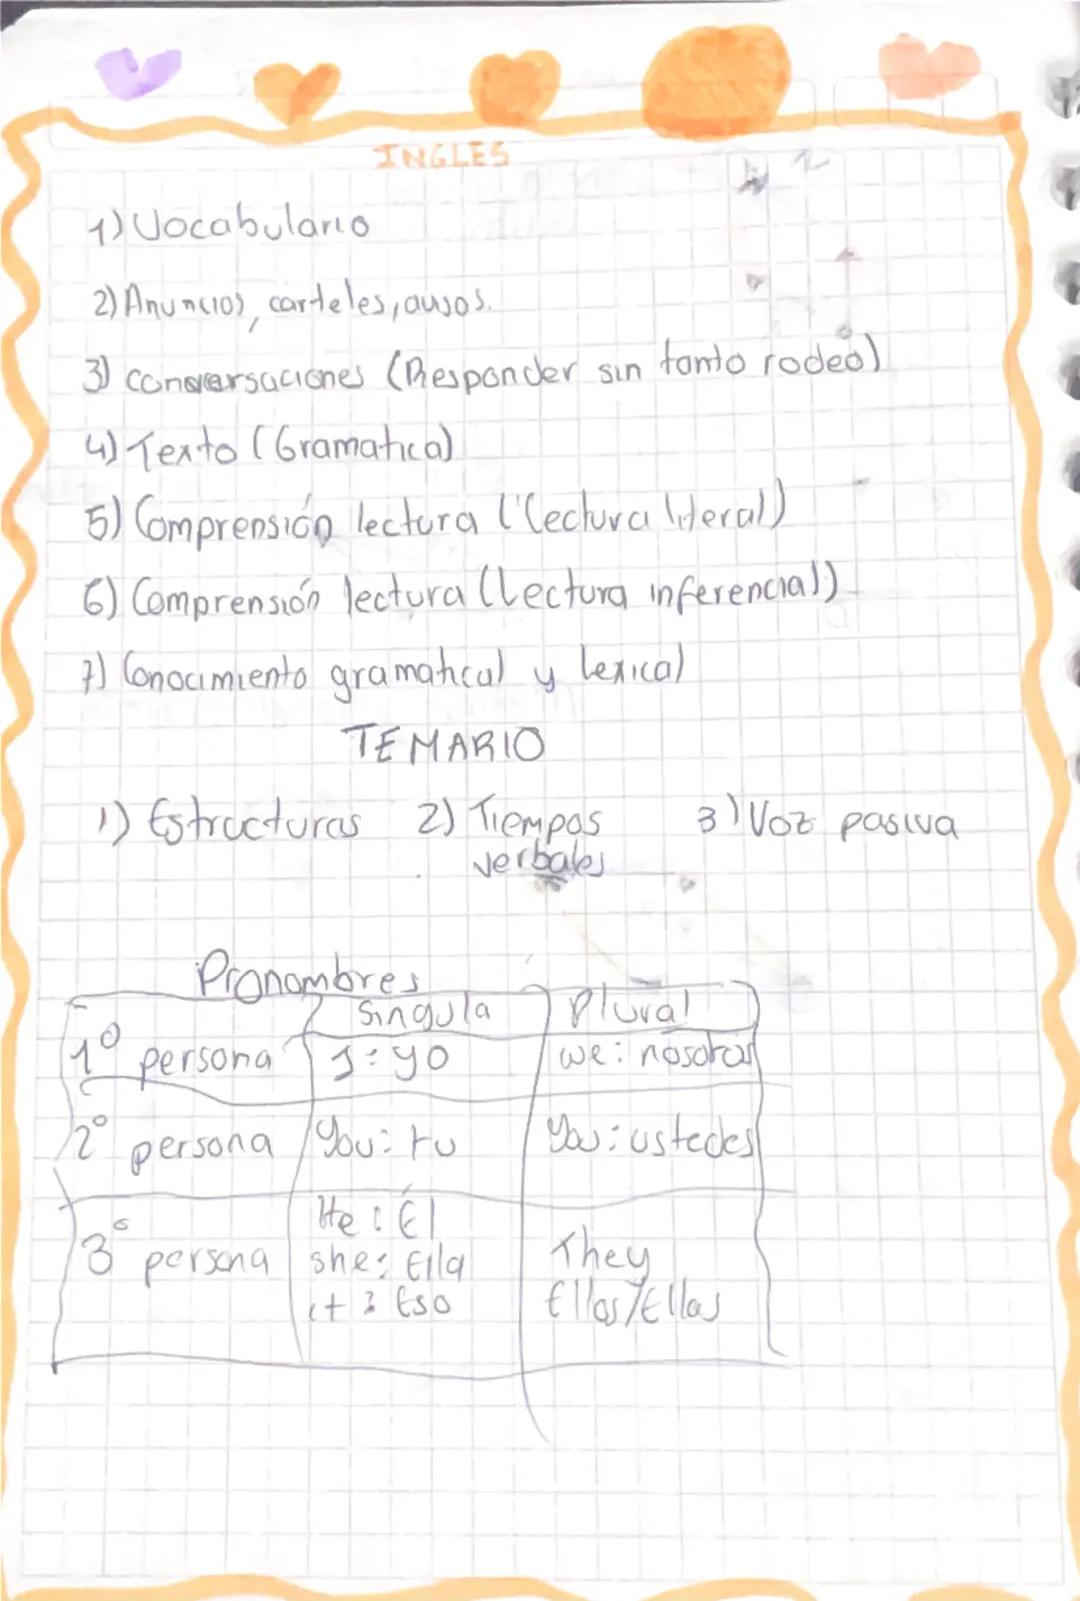 INGLES
1) Vocabulario
2) Anuncios, carteles, avisos.
3) conversaciones (Responder sin tanto rodeo)
4) Texto (Gramatica)
5) Comprensión lectura (Lectura literal)
6) Comprensión lectura (Lectura inferencial)
7) Conocimiento gramatical y Lexical
TEMARIO
1) Estructuras 2) Tiempos verbales 3) Voz pasiva
Pronombres
Singula Plural
1° persona I: yo we: nosotros
2° persona You: tu You: ustedes
3° persona He: Él
she: Ella They
it: Eso Ellos/Ellas